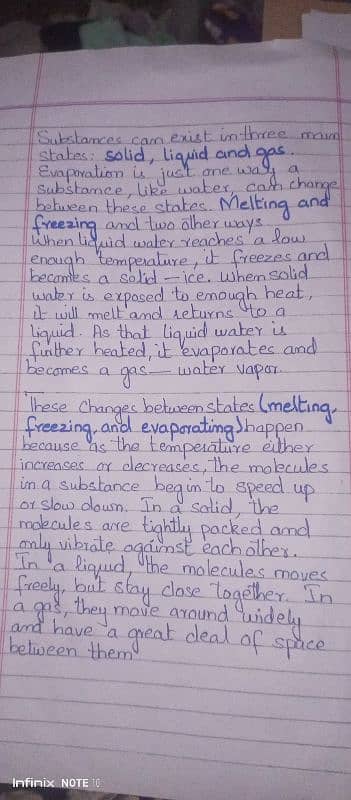 Substances can exist in three main
states: solid, liquid and gas.
Evaporation is just one way a
substance, like water, can change
between these states. Melting and
freezing and two other ways.
When liquid water reaches a low
enough temperature, it freezes and
becomes a solid – ice. when solid
water is exposed to enough heat,
it will melt and returns to a
liquid. As that liquid water is
further heated, it evaporates and
becomes a gas – water vapor.
These changes between states (melting,
freezing, and evaporating) happen
because as the temperature either
increases or decreases, the molecules
in a substance begin to speed up
or slow down. In a solid, the
molecules are tightly packed and
only vibrate against each other.
In a liquid, the molecules moves
freely, but stay close together. In
a gas, they move around widely
and have a great deal of space
between them
Infinix NOTE 10